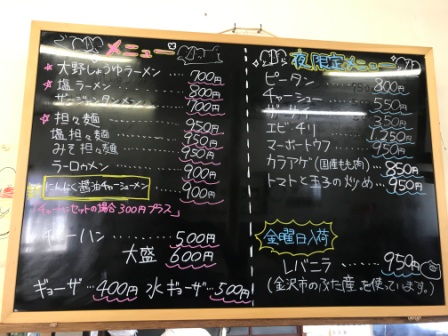 メニュー
大野しょうゆラーメン…700円
塩ラーメン……800円
700円
担々麺……950円
塩担々麺……950円
みそ担々麺……950円
ラーロゥメン……900円
にんにく醤油チャーシューメン…900円
セットの場合300円プラス」
チャーハン……500円
大盛 600円
ギョーザ…400円 水ギョーザ…500円
夜限定メニュー
ピータン……800円
チャーシュー……550円
350円
エビチリ……1,250円
マーボートウフ……950円
カラアゲ(国産もも肉)…850円
トマトと玉子の炒め…950円
金曜日入荷
レバニラ……950円
(金沢市のぶた産を使っています。)